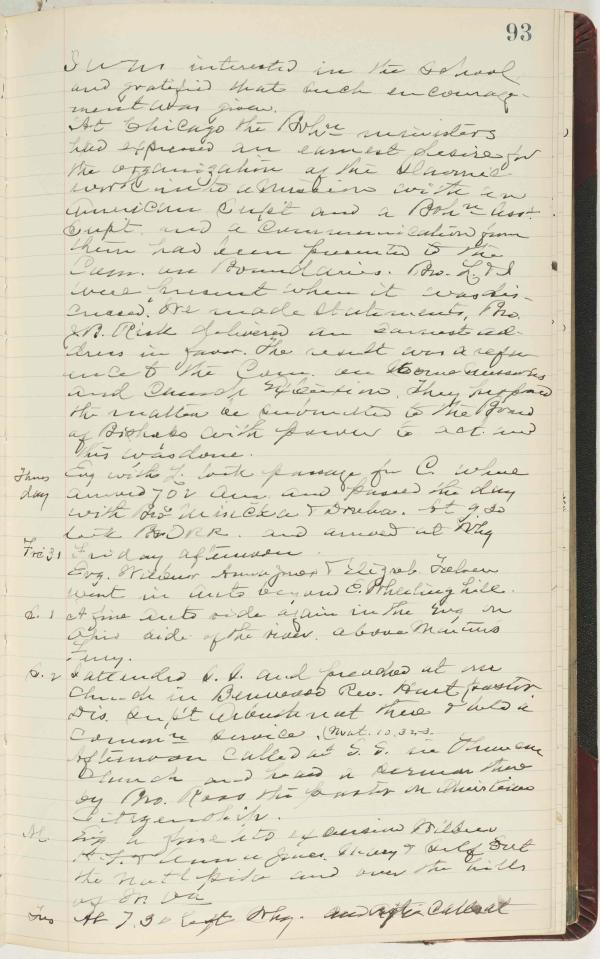 93
interested in the school
and gratified that such encourage-
ment was given.
At Chicago the Bohn ministers
had expressed an earnest desire for
the organization of the Slavonic
work into a mission with an
American Supt and a Bohn Asst
Supt. and a communication from
them had been presented to the
Com. on Boundaries. Bro. L. & I
were present when it was dis-
cussed. We made statements, Bro.
Risk delivered an earnest ad-
dress in favor. The result was a refer
ence to the Com. on Home Missions
and Church Extension. They proposed
the matter be submitted to the Board
of Bishops with power to act and
this was done.
Thurs
day
Evg with L. took passage for C. where
arrived 702 Am. and passed the day
with Bro At 9.50
took B & O R.R. and arrived at Whg
Fri 31 Friday afternoon.
Evg. Wilbur
went in auto beyond E. Wheeling hill.
S. 1 A fine auto ride again in the Evg on
Ohio side of the river above Martins
Ferry.
S. 2 I attended S. S. and preached at our
Church in Benwood Rev. Hunt pastor
Dis. Supt there & held a
Commn service. (Mat. 10.32-3.
Afternoon called at
Church and heard a sermon there
by Bro. Ross the pastor on Christian
Citizenship.
M. Evg a fine auto excursion Wilbur
Mary & Self Out
the Natl Pike and over the hills
of W. Va
Tues At 7.30 left Whg. and after Call at